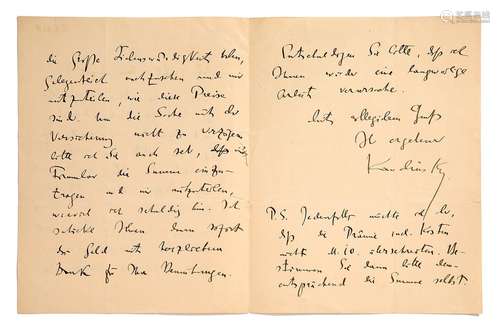 die große Liebenswürdigkeit haben,
gelegentlich nachzusehen und mir
mitzuteilen, wie diese Preise
sind. Um die Sache mit der
Versicherung nicht zu verzögern
bitte ich Sie auch sehr, das
Formular die Summe einzu-
tragen und mir mitzuteilen,
wieviel ich schuldig bin. Ich
schicke Ihnen dann sofort
das Geld mit herzlichem
Dank für Ihre Bemühungen.
Entschuldigen Sie bitte, daß ich
Ihnen wieder eine langweilige
Arbeit verursache.
Mit kollegialem Gruß
Ihr ergebener
Kandinsky
P.S. Jedenfalls möchte ich,
daß die Prämie incl. Kosten
nicht M. 10. überschreiten. Be-
stimmen Sie dann bitte dem-
entsprechend die Summe selbst.